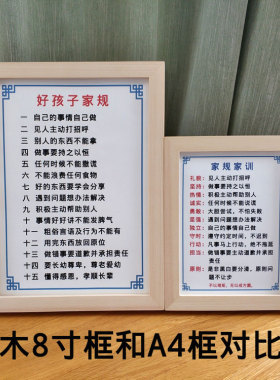 好孩子家规
一 自己的事情自己做
二 见人主动打招呼
三 别人的东西不能拿
四 做事要持之以恒
五 任何时候不能撒谎
六 不能浪费任何食物
七 好的东西要学会分享
八 遇到问题想办法解决
九 积极主动帮助别人
十 事情好好讲不能发脾气
十一 粗俗言语及行为不能有
十二 用完东西放回原位
十三 做错事要道歉并承担责任
十四 要长幼尊卑，尊老爱幼
十五 懂得感恩，孝顺长辈
家规家训
礼貌：见人主动打招呼
坚持：做事要持之以恒
热情：积极主动帮助别人
诚实：任何时候不能说谎
勇敢：大胆尝试，不怕失败
思维：遇到问题想办法解决
独立：自己的事情自己做
守时：遵守约定的时间，不迟到
行动：凡事马上行动，绝不拖延
担当：做错事要主动道歉并承担责任
原则：是非面白要分清，原则问题不让步
木8寸框和A4框对比